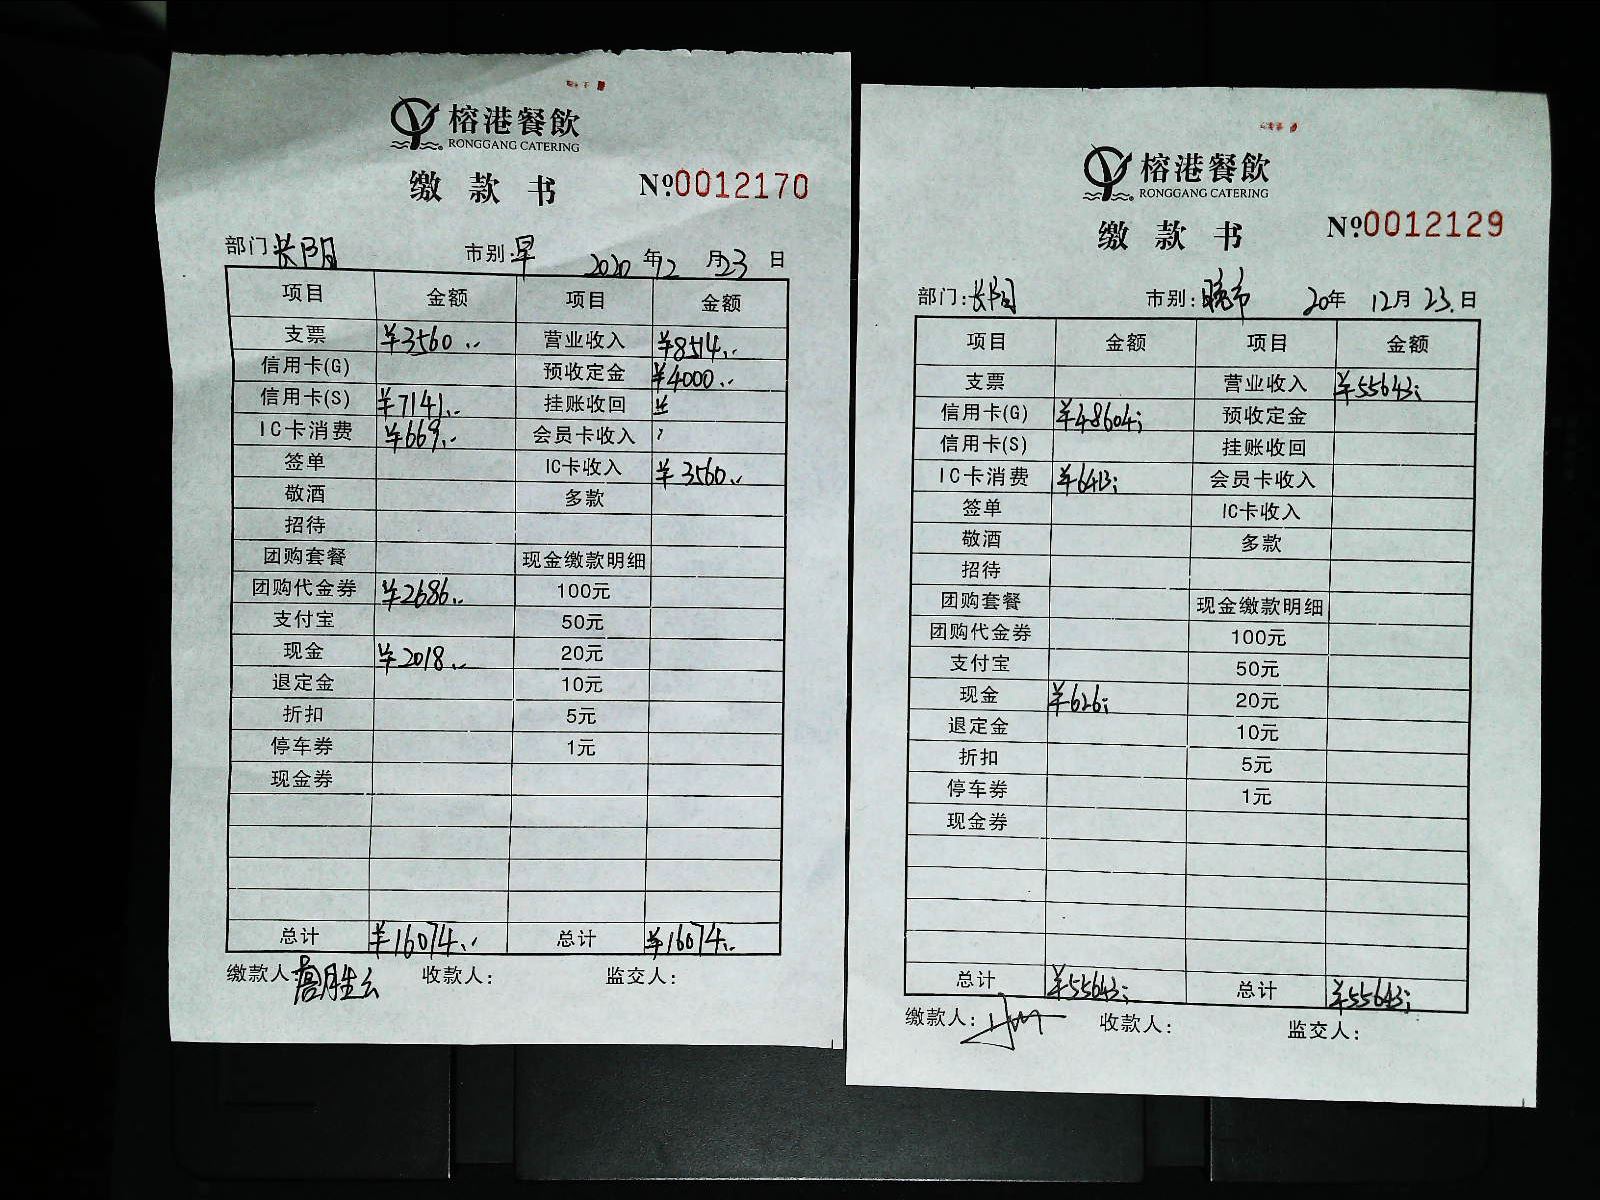 榕港餐飲
RONGGANG CATERING
缴款书 №0012170
部门 长阳 市别:早 2020年12月23日
项目 金额 项目 金额
支票 ¥3560.. 营业收入 ¥8514..
信用卡(G) 预收定金 ¥4000..
信用卡(S) ¥7141.. 挂账收回
IC卡消费 ¥669.. 会员卡收入
签单 IC卡收入 ¥3560..
敬酒 多款
招待
团购套餐 现金缴款明细
团购代金券 ¥2686.. 100元
支付宝 50元
现金 ¥2018.. 20元
退定金 10元
折扣 5元
停车券 1元
现金券
总计 ¥16074.. 总计 ¥16074..
缴款人: 收款人: 监交人:
榕港餐飲
RONGGANG CATERING
缴款书 №0012129
部门:长阳 市别:晚市 20年12月23.日
项目 金额 项目 金额
支票 营业收入 ¥55643;
信用卡(G) ¥48604; 预收定金
信用卡(S) 挂账收回
IC卡消费 ¥6413; 会员卡收入
签单 IC卡收入
敬酒 多款
招待
团购套餐 现金缴款明细
团购代金券 100元
支付宝 50元
现金 ¥626; 20元
退定金 10元
折扣 5元
停车券 1元
现金券
总计 ¥55643; 总计 ¥55643;
缴款人: 收款人: 监交人: